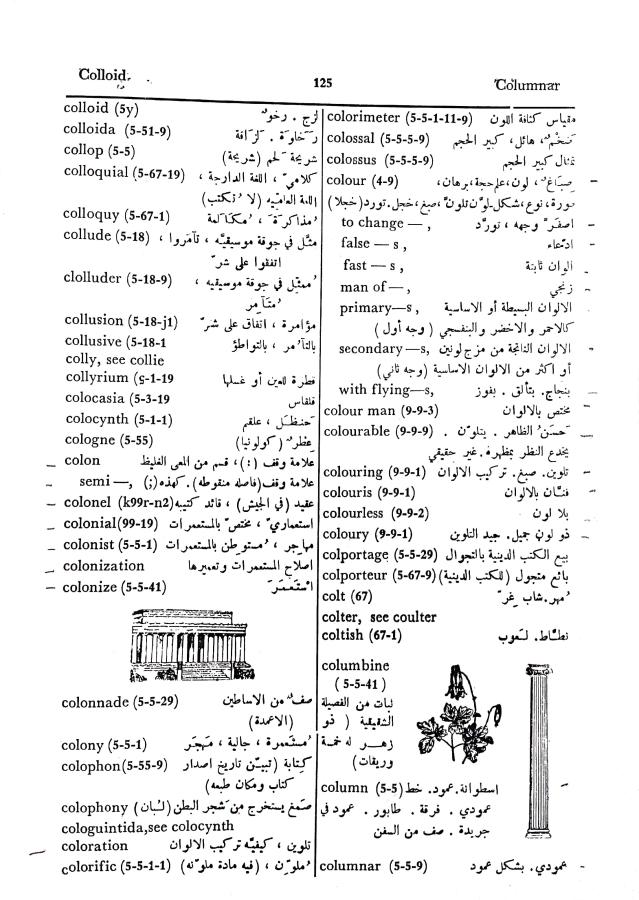 Colloid
125
Columnar
colloid (5y) لزج . رخو
colloida (5-51-9) رخاوة . لزاقة
collop (5-5) شريحة لحم (شريحة)
colloquial (5-67-19) كلامي ، اللغة الدارجة ،
اللغة العامية (لا تكتب)
colloquy (5-67-1) مذاكرة ، مكالمة
collude (5-18) مثل في جوقة موسيقيه ، تآمروا ،
اتفقوا على شر
clolluder (5-18-9) ممثل في جوقة موسيقيه ،
متآمر
collusion (5-18-j1) مؤامرة ، اتفاق على شر
collusive (5-18-1 بالتآمر ، بالتواطؤ
colly, see collie
collyrium (ç-1-19 قطرة للعين أو غسلها
colocasia (5-3-19 قلقاس
colocynth (5-1-1) حنظل ، علقم
cologne (5-55) عطر (كولونيا)
colon علامة وقف (:) ، قسم من المعى الغليظ
semi —, علامة وقف (فاصله منقوطه) . كهذه (;)
colonel (k99r-n2) عقيد (في الجيش) ، قائد كتيبه
colonial(99-19) استعماري ، مختص بالمستعمرات
colonist (5-5-1) مهاجر ، مستوطن بالمستعمرات
colonization اصلاح المستعمرات وتعميرها
colonize (5-5-41) استعمر
colonnade (5-5-29) صف من الاساطين
(الاعمدة)
colony (5-5-1) مستعمرة ، جالية ، مهجر
colophon(5-55-9) كتابة (تبين تاريخ اصدار
كتاب ومكان طبعه)
colophony صمغ يستخرج من شجر البطن (لبان)
cologuintida,see colocynth
coloration تلوين ، كيفية تركيب الالوان
colorific (5-5-1-1) ملون ، (فيه مادة ملونه)
colorimeter (5-5-1-11-9) مقياس كثافة اللون
colossal (5-5-5-9) ضخم ، هائل ، كبير الحجم
colossus (5-5-5-9) تمثال كبير الحجم
colour (4-9) صباغ ، لون ، علم حجة ، برهان ،
صورة ، نوع ، شكل . لون تلون ، صبغ ، خجل . تورد (خجلا)
to change — , اصفر وجهه ، تورد
false — s , ادعاء
fast — s , الوان ثابتة
man of —, زنجي
primary—s, الالوان البسيطة أو الاساسية
كالاحمر والاخضر والبنفسجي ( وجه أول )
secondary—s, الالوان الناتجة من مزج لونين
أو اكثر من الالوان الاساسية (وجه ثاني)
with flying—s, بنجاح . بتألق . بفوز
colour man (9-9-3) مختص بالالوان
colourable (9-9-9) حسن الظاهر . يتلون .
يخدع النظر بمظهره . غير حقيقي
colouring (9-9-1) تلوين . صبغ . تركيب الالوان
colouris (9-9-1) فنان بالالوان
colourless (9-9-2) بلا لون
coloury (9-9-1) ذو لون جميل . جيد التلوين
colportage (5-5-29) بيع الكتب الدينية بالتجوال
colporteur (5-67-9) بائع متجول (للكتب الدينية)
colt (67) مهر . شاب غر
colter, see coulter
coltish (67-1) نطاط . لعوب
columbine
(5-5-41)
نبات من الفصيلة
الشقيقية ( ذو
زهر له خمسة
وريقات)
column (5-5) اسطوانة . عمود . خط
عمودي . فرقة . طابور . عمود في
جريدة . صف من السفن
columnar (5-5-9) عمودي . بشكل عمود